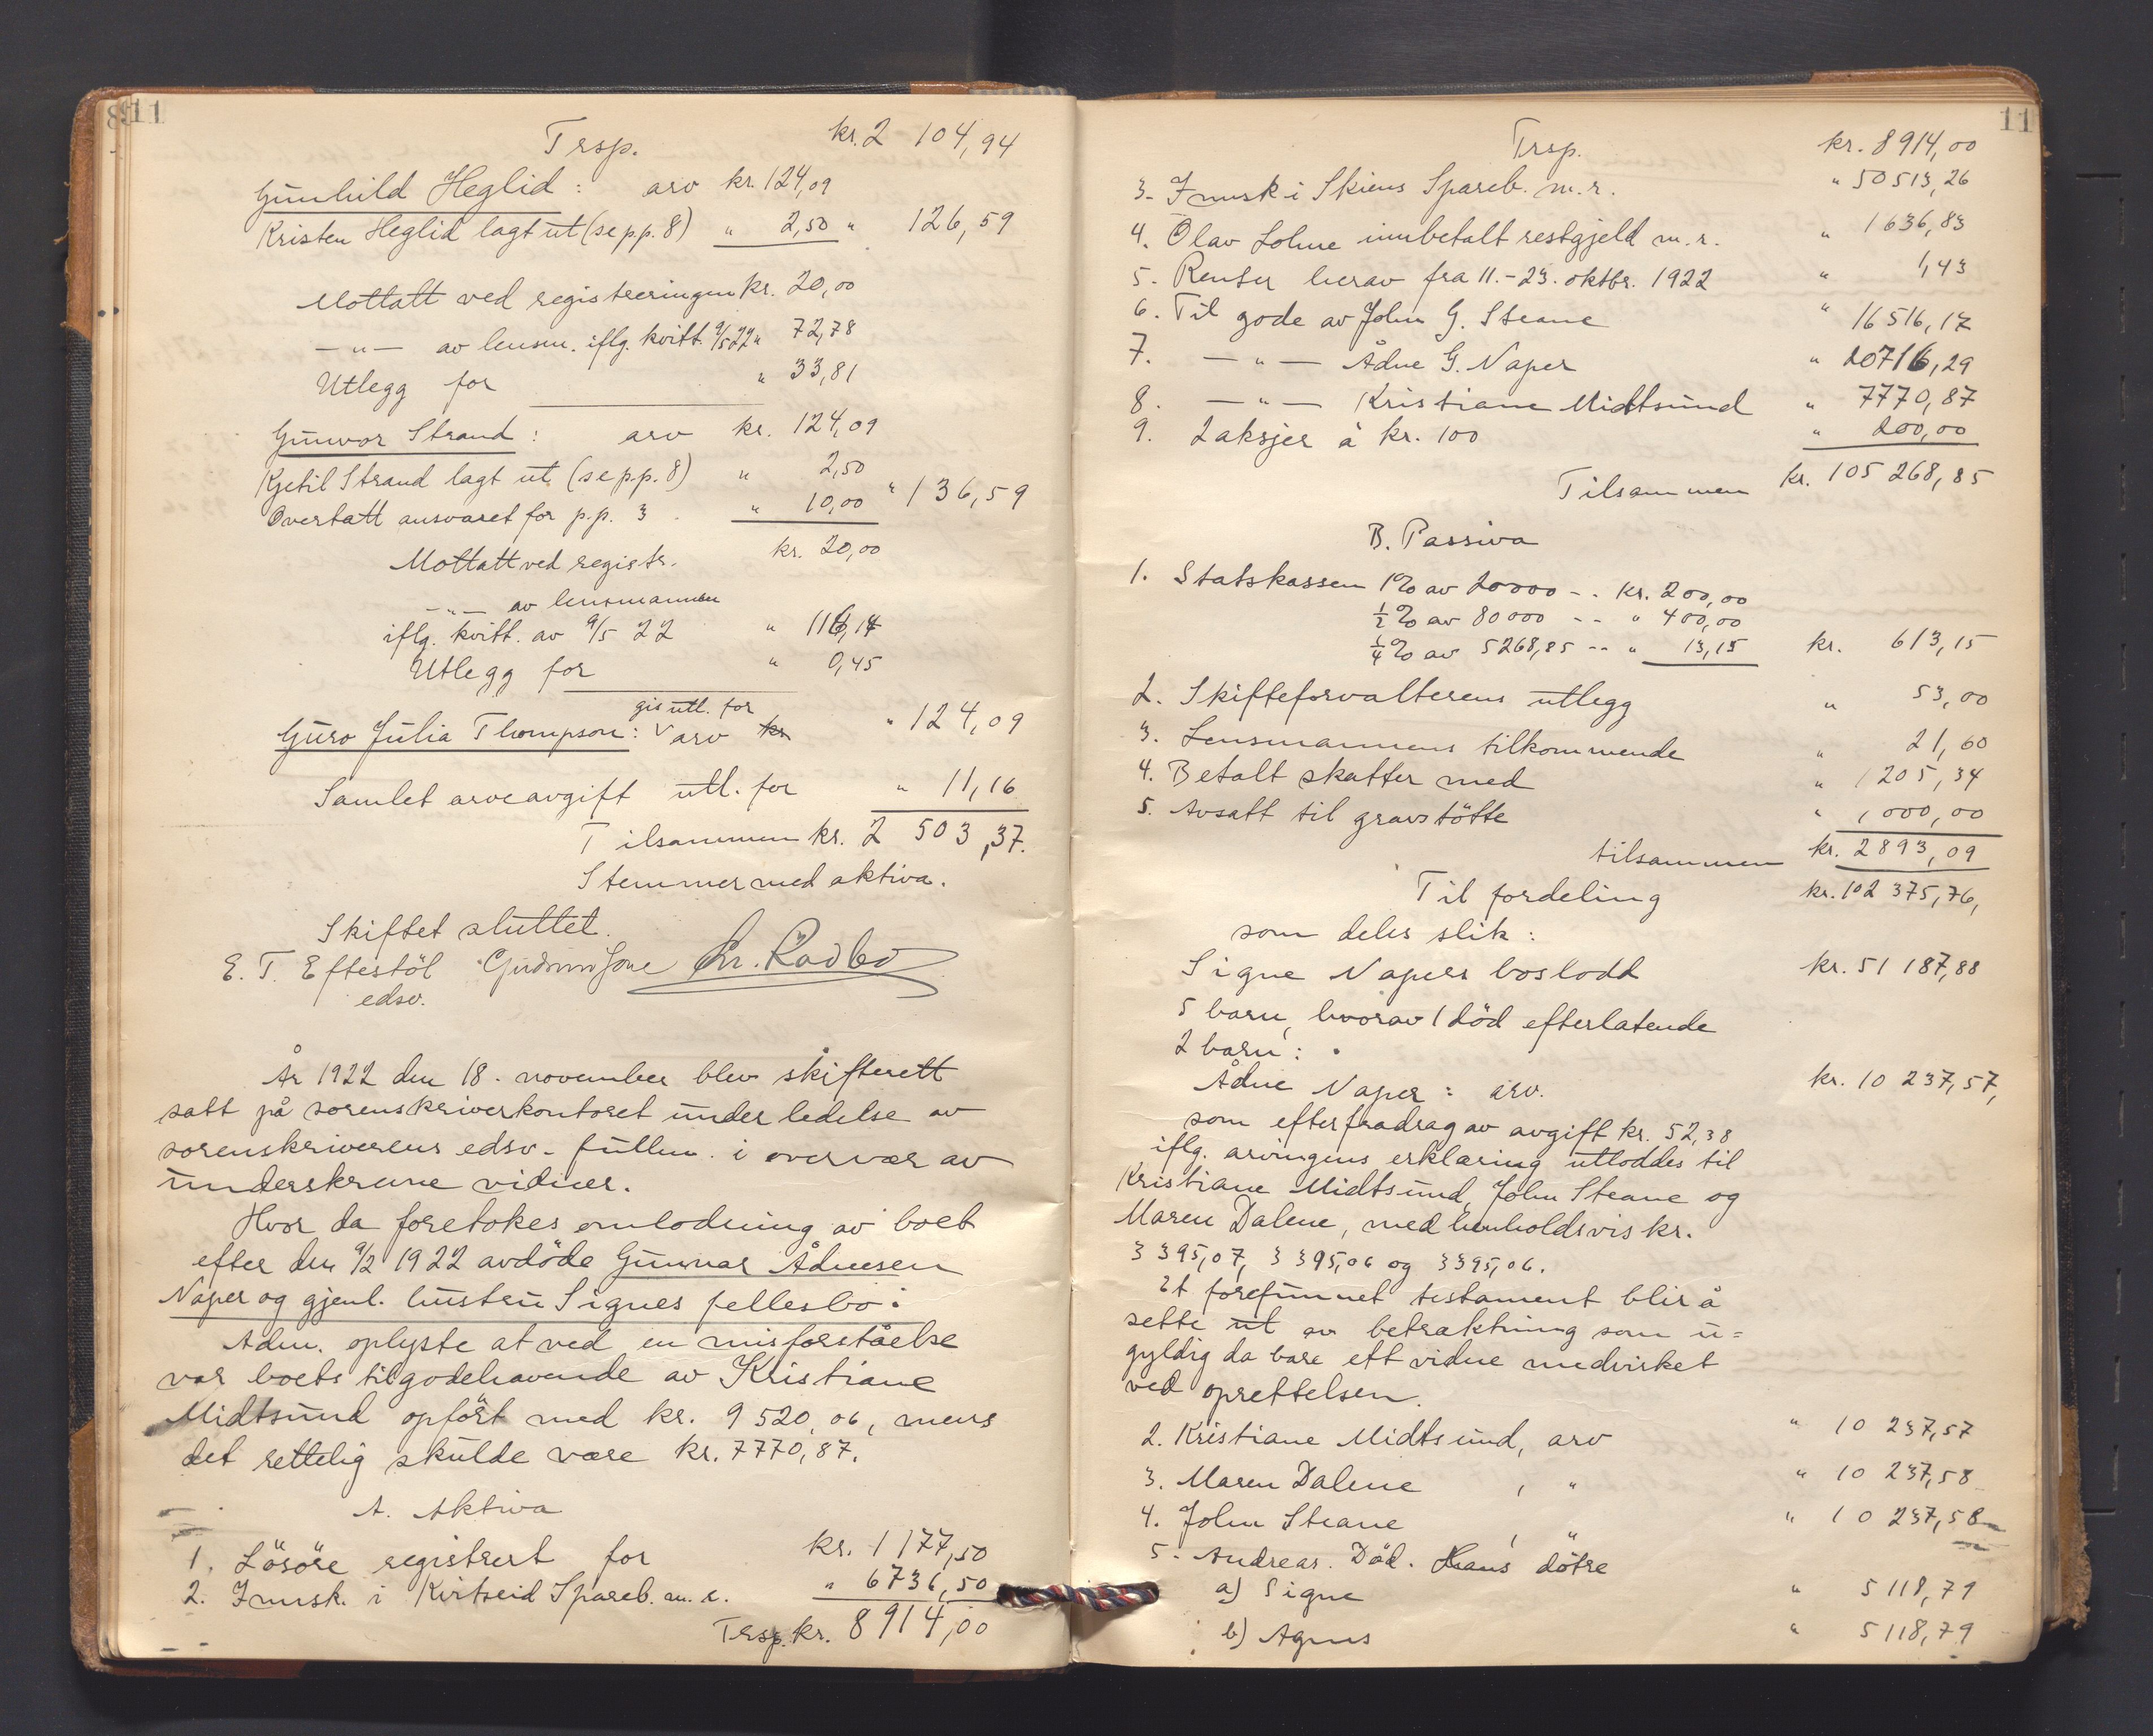 11
Trsp. kr. 2 104,94
Gunhild Heglid: arv kr. 124,09
Kristen Heglid lagt ut (se p.p. 8) " 2,50 " 126,59
Mottatt ved registreringen kr. 20,00
—"— av lensm. iflg. kvitt. 9/5 22 " 72,78
Utlegg for " 33,81
Gunvor Strand: arv kr. 124,09
Kjetil Strand lagt ut (se p.p. 8) " 2,50
Overtatt ansvaret for p.p. 3. " 10,00 " 136,59
Mottatt ved registr. kr. 20,00
—"— av lensmannen
iflg. kvitt. av 9/5 22 " 116,14
Utlegg for " 0,45
gis utl. for
Guro Julia Thompson: arv kr " 124,09
Samlet arveavgift utl. for " 11,16
Tilsammen kr. 2 503,37.
Stemmer med aktiva.
Skiftet sluttet.
E. T. Eftestöl
edsv.
År 1922 den 18. november blev skifterett
satt på sorenskriverkontoret under ledelse av
sorenskriverens edsv. fullm. i overvær av
underskrevne vidner.
Hvor da foretokes omlodning av boet
efter den 9/2 1922 avdöde Gunnar Ådnesen
Naper og gjenl. hustru Signes fellesbo:
Adm. oplyste at ved en misforståelse
var boets tilgodehavende av Kristiane
Midtsund opfört med kr. 9 520,06, mens
det rettelig skulde være kr. 7770,87.
A. Aktiva
1. Lösöre registrert for kr. 1 177,50
2. Innsk. i Kvitseid Spareb. m. r. " 6736,50
Trsp. kr. 8 914,00
11
Trsp. kr. 8914,00
3. Innsk i Skiens Spareb. m. r. " 50 513,26
4. Olav Lohne innbetalt restgjeld m. r. " 1636,83
5. Renter herav fra 11.-23. oktbr. 1922 " 1,43
6. Til gode av John G. Steane " 16 516,17
7. —"— Ådne G. Naper " 20716,29
8. —"— Kristiane Midtsund " 7770,87
9. 2 aksjer à kr. 100 " 200,00
Tilsammen kr. 105 268,85
B. Passiva
1. Statskassen 1% av 20000 -- kr. 200,00
1/2% av 80 000 -- " 400,00
1/4% av 5268,85 -- " 13,15 kr. 613,15
2. Skifteforvalterens utlegg " 53,00
3. Lensmannens tilkommende " 21,60
4. Betalt skatter med " 1 205,34
5. Avsatt til gravstötte " 1,000,00
tilsammen kr. 2893,09
Til fordeling kr. 102 375,76,
som deles slik:
Signe Napers boslodd kr. 51 187,88
5 barn, hvorav 1 död efterlatende
2 barn:
Ådne Naper: arv. kr. 10 237,57,
som efter fradrag av avgift kr. 52,38
iflg. arvingens erklæring utloddes til
Kristiane Midtsund, John Steane og
Maren Dalene, med henholdsvis kr.
3 395,07, 3 395,06 og 3395,06.
Et forefunnet testament blir å
sette ut av betraktning som u=
gyldig da bare ett vidne medvirket
ved oprettelsen.
2. Kristiane Midtsund, arv " 10 237,57
3. Maren Dalene , " " 10 237,58
4. John Steane , " " 10 237,58
5. Andreas. Död. Hans dötre
a) Signe " 5 118,79
b) Agnes " 5 118,79